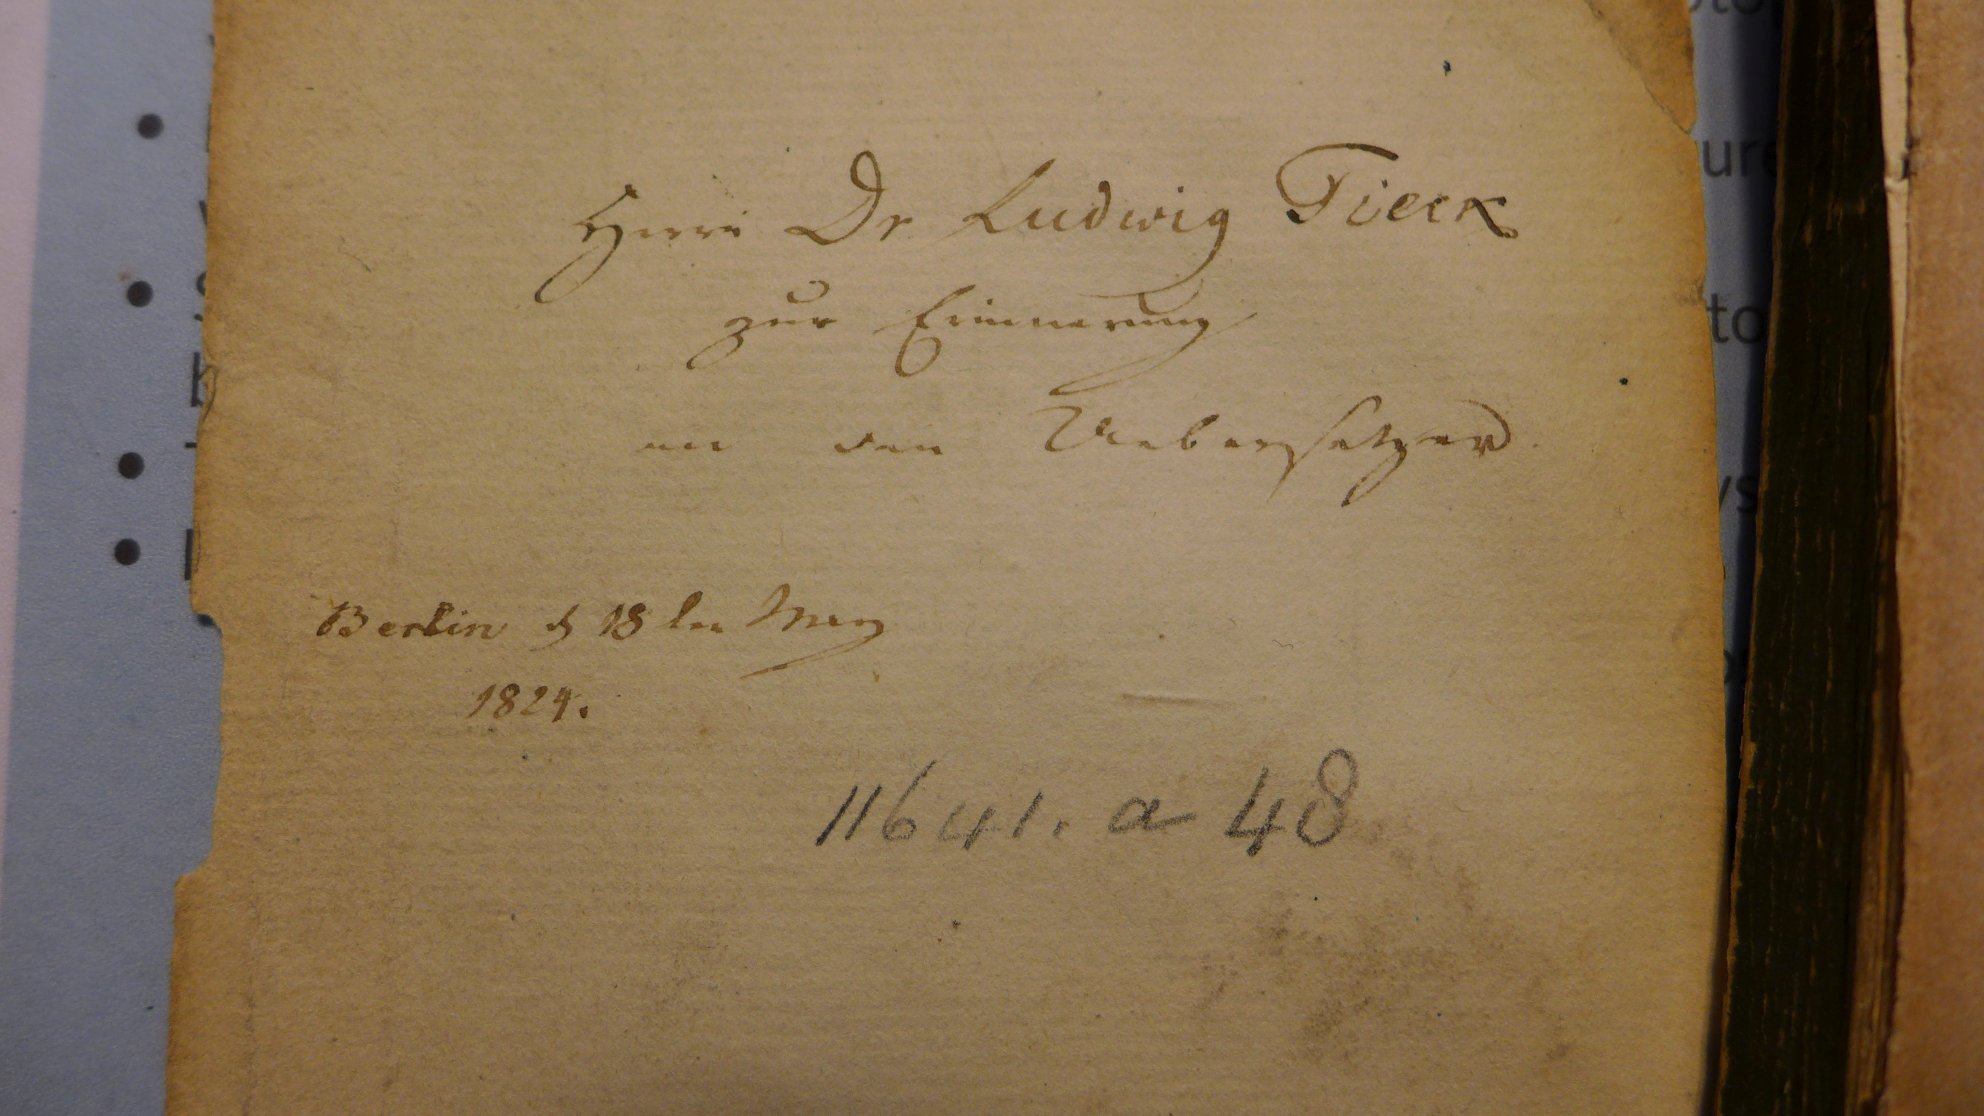 Herrn Dr Ludwig Tieck
zur Erinnerung
an den Uebersetzer.
Berlin d 18ten May
1824.
11641. a 48
ure
to
ys